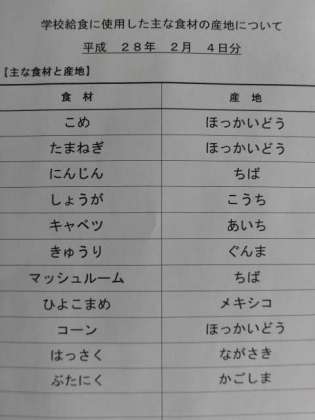 学校給食に使用した主な食材の産地について
平成 28年 2月 4日分
【主な食材と産地】
食 材 産 地
こめ ほっかいどう
たまねぎ ほっかいどう
にんじん ちば
しょうが こうち
キャベツ あいち
きゅうり ぐんま
マッシュルーム ちば
ひよこまめ メキシコ
コーン ほっかいどう
はっさく ながさき
ぶたにく かごしま